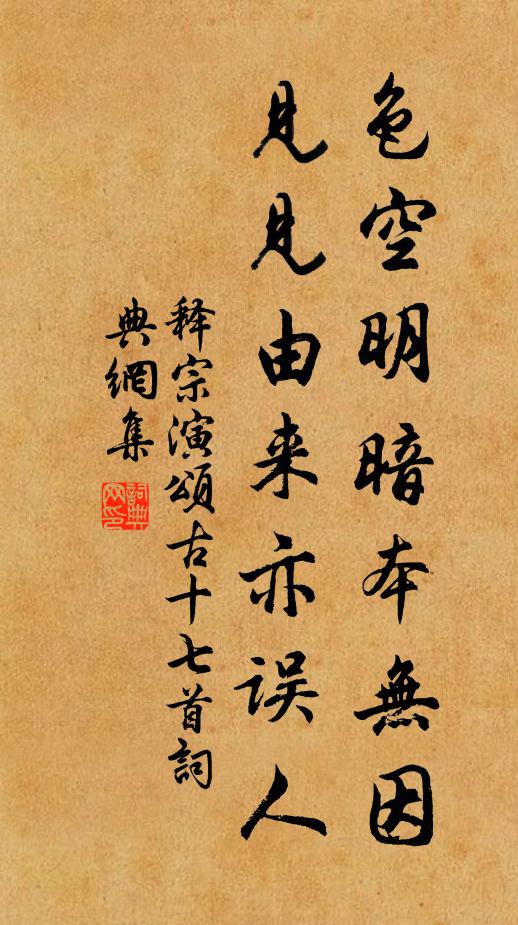 色空明暗本無因
見見由来亦误人
释宗演頌古十七首詞
典網集
詞典
网印